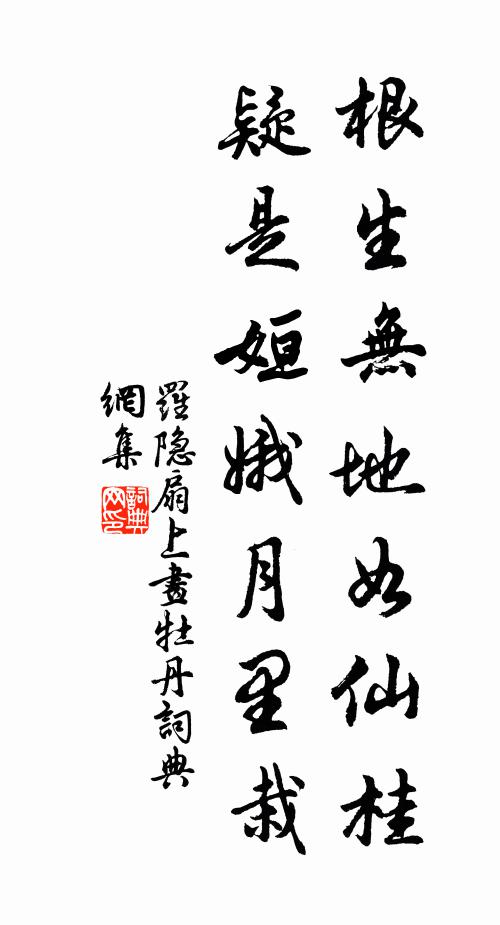 根生無地如仙桂
疑是姮娥月里栽
羅隐扇上畫牡丹詞典
網集
詞典网印